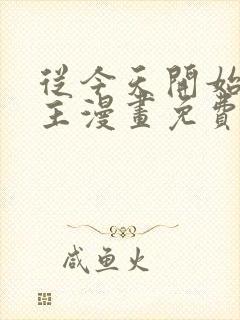 從今天開始
主漫畫免費
咸鱼火